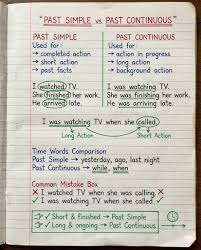 "PAST SIMPLE vs PAST CONTINUOUS"
PAST SIMPLE
Used for:
→ completed action
→ short action
→ past facts
I watched TV.
She finished her work.
He arrived late.
PAST CONTINUOUS
Used for:
→ action in progress
→ long action
→ background action
I was watching TV.
She was finishing her work.
He was arriving late.
I was watching TV when she called.
Long Action
Short Action
Time Words Comparison
Past Simple → yesterday, ago, last night
Past Continuous → while, when
Common Mistake Box
✗ I watched TV when she was calling. ✗
✓ I was watching TV when she called ✓
☞ ✓ Short & finished → Past Simple
☞ ✓ Long & ongoing → Past Continuous